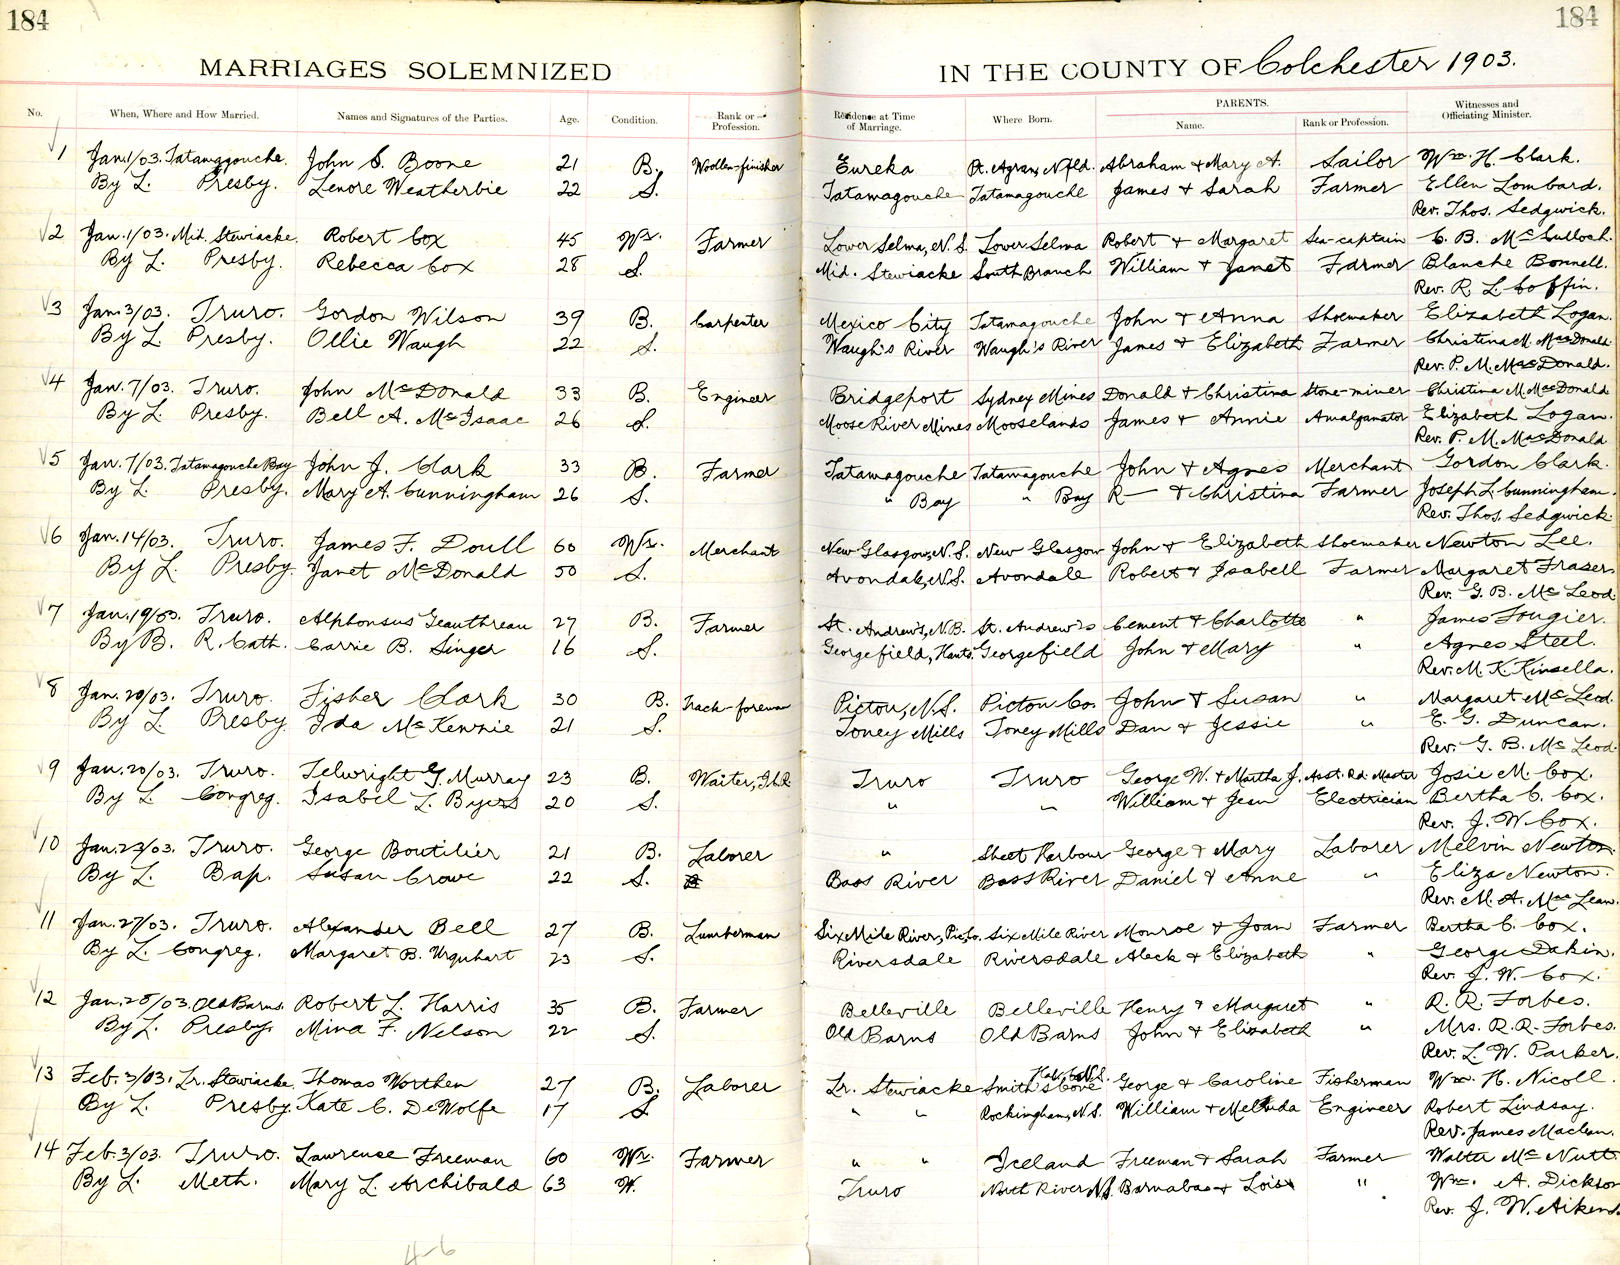 184
184
MARRIAGES SOLEMNIZED IN THE COUNTY OF Colchester 1903.
No. When, Where and How Married. Names and Signatures of the Parties. Age. Condition. Rank or Profession. Residence at Time of Marriage. Where Born. PARENTS. Name. Rank or Profession. Witnesses and Officiating Minister.
1 Jan. 1/03. Tatamagouche. John S. Boone 21 B. Woollen-finisher Eureka Nfld. Abraham & Mary A. Sailor Wm. H. Clark.
By L. Presby. Lenore Weatherbie 22 S. Tatamagouche Tatamagouche James & Sarah Farmer Ellen Lombard.
Rev. Thos. Sedgwick.
2 Jan. 1/03. Mid. Stewiacke. Robert Cox 45 Wr. Farmer Lower Selma, N.S. Lower Selma Robert & Margaret Sea-captain C. B. McCulloch.
By L. Presby. Rebecca Cox 28 S. Mid. Stewiacke South Branch William & Janet Farmer Blanche Bonnell.
Rev. R. L. Coffin.
3 Jan. 3/03. Truro. Gordon Wilson 39 B. Carpenter Mexico City Tatamagouche John & Anna Shoemaker Elizabeth Logan.
By L. Presby. Ollie Waugh 22 S. Waugh's River Waugh's River James & Elizabeth Farmer Christina M. MacDonald
Rev. P. M. MacDonald.
4 Jan. 7/03. Truro. John McDonald 33 B. Engineer Bridgeport Sydney Mines Donald & Christina Stone-miner Christina M. MacDonald
By L. Presby. Bell A. McIsaac 26 S. Moose River Mines Mooselands James & Annie Amalgamator Elizabeth Logan.
Rev. P. M. MacDonald
5 Jan. 7/03. Tatamagouche Bay John J. Clark 33 B. Farmer Tatamagouche Tatamagouche John & Agnes Merchant Gordon Clark.
By L. Presby. Mary A. Cunningham 26 S. " Bay " Bay R— & Christina Farmer Joseph L. Cunningham.
Rev. Thos. Sedgwick.
6 Jan. 14/03. Truro. James F. Doull 60 Wr. Merchant New Glasgow, N.S. New Glasgow John & Elizabeth Shoemaker Newton Lee.
By L. Presby. Janet McDonald 50 S. Avondale, N.S. Avondale Robert & Isabell Farmer Margaret Fraser.
Rev. G. B. McLeod.
7 Jan. 19/03. Truro. Alphonsus Geauthreau 27 B. Farmer St. Andrew's, N.B. St. Andrew's Cement & Charlotte " James Fougier.
By B. R. Cath. Carrie B. Singer 16 S. Georgefield, Hants. Georgefield John & Mary " Agnes Steel.
Rev. M. K. Kinsella.
8 Jan. 20/03. Truro. Fisher Clark 30 B. Track-foreman Pictou, N.S. Pictou Co. John & Susan " Margaret McLeod.
By L. Presby. Ida McKennie 21 S. Toney Mills Toney Mills Dan & Jessie " E. G. Duncan.
Rev. G. B. McLeod.
9 Jan. 20/03. Truro. Telwright G. Murray 23 B. Waiter, I.C.R. Truro Truro George W. & Martha J. Asst. Rd. Master Josie M. Cox.
By L. Congreg. Isabel L. Byers 20 S. " " William & Jean Electrician Bertha C. Cox.
Rev. J. W. Cox.
10 Jan. 23/03. Truro. George Boutilier 21 B. Laborer " Sheet Harbour George & Mary Laborer Melvin Newton.
By L. Bap. Susan Crowe 22 S. Bass River Bass River Daniel & Anne " Eliza Newton.
Rev. M. A. MacLean.
11 Jan. 27/03. Truro. Alexander Bell 27 B. Lumberman Six Mile River, Pic. Co. Six Mile River Monroe & Joan Farmer Bertha C. Cox.
By L. Congreg. Margaret B. Urquhart 23 S. Riversdale Riversdale Aleck & Elizabeth " George Dakin.
Rev. J. W. Cox.
12 Jan. 28/03. Old Barns. Robert L. Harris 35 B. Farmer Belleville Belleville Henry & Margaret " R. R. Forbes.
By L. Presby. Mina F. Nelson 22 S. Old Barns Old Barns John & Elizabeth " Mrs. R. R. Forbes.
Rev. L. W. Parker.
13 Feb. 3/03. Lr. Stewiacke. Thomas Worthen 27 B. Laborer Lr. Stewiacke Smith's Cove George & Caroline Fisherman Wm. H. Nicoll.
By L. Presby. Kate C. DeWolfe 17 S. " " Rockingham, N.S. William & Melinda Engineer Robert Lindsay.
Rev. James Maclean.
14 Feb. 3/03. Truro. Lawrence Freeman 60 Wr. Farmer " " Iceland Freeman & Sarah Farmer Walter McNutt.
By L. Meth. Mary L. Archibald 63 W. Truro North River N.S. Barnabas & Lois " Wm. A. Dickson
Rev. J. W. Aikens.
4-6